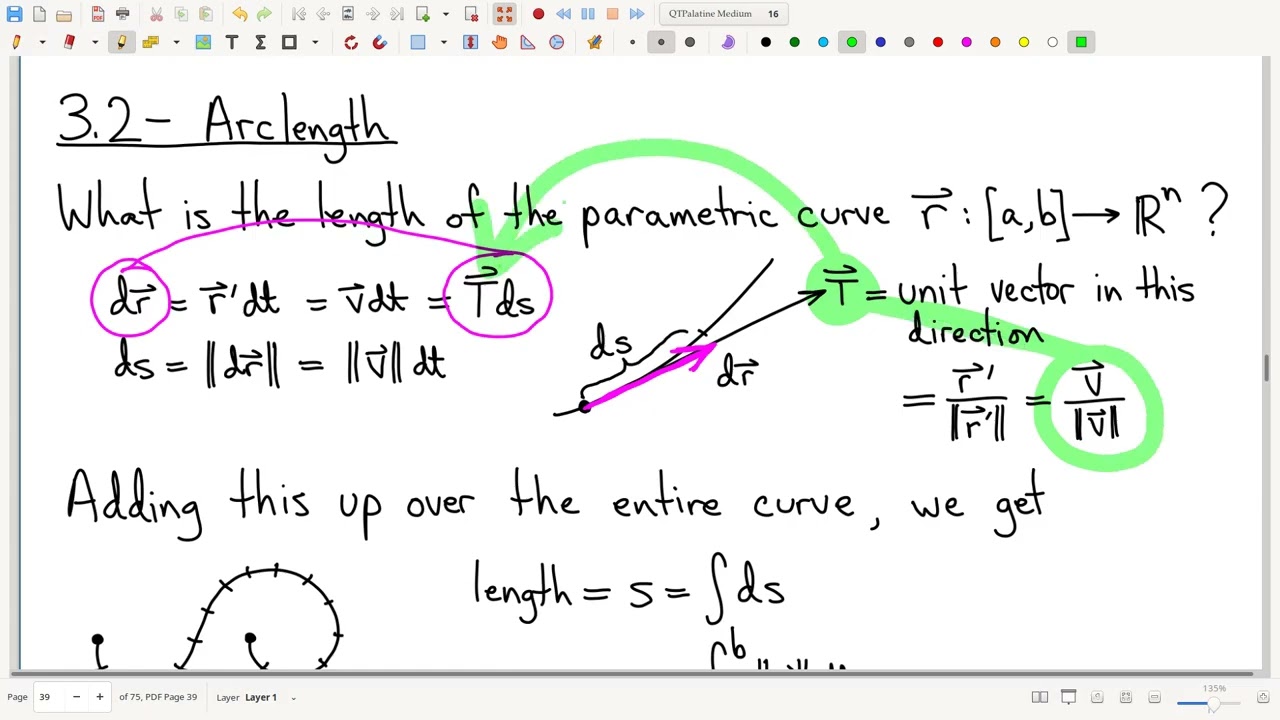 QTPalatine Medium 16
3.2- Arclength
What is the length of the parametric curve r⃗ : [a,b] → ℝⁿ ?
dr⃗ = r⃗'dt = v⃗dt = T⃗ds
ds = ||dr⃗|| = ||v⃗||dt
ds
dr⃗
T⃗ = unit vector in this
direction
= r⃗'/||r⃗'|| = v⃗/||v⃗||
Adding this up over the entire curve, we get
length = s = ∫ds
∫b
Page 39 of 75, PDF Page 39 Layer Layer 1 135%